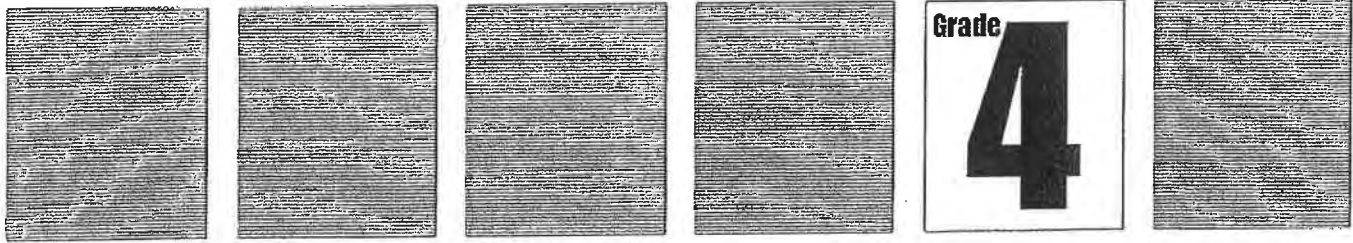 Grade
4